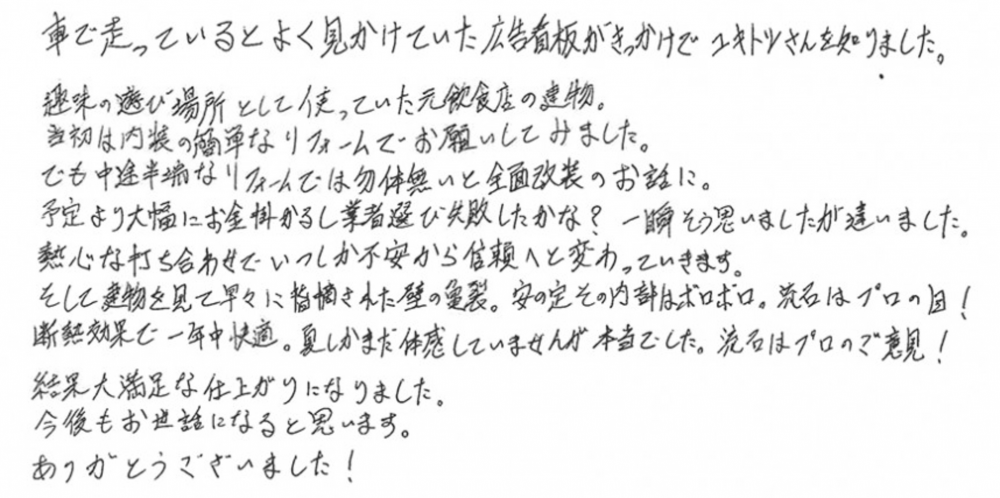 車で走っているとよく見かけていた広告看板がきっかけでユキトシさんを知りました。
趣味の遊び場所として使っていた元飲食店の建物。
当初は内装の簡単なリフォームでお願いしてみました。
でも中途半端なリフォームでは勿体無いと全面改装のお話に。
予定より大幅にお金掛かるし業者選び失敗したかな？一瞬そう思いましたが違いました。
熱心な打ち合わせでいつしか不安から信頼へと変わっていきます。
そして建物を見て早々に指摘された壁の亀裂。安の定その内部はボロボロ。流石はプロの目！
断熱効果で一年中快適。夏しかまだ体感していませんが本当でした。流石はプロのご意見！
結果大満足な仕上がりになりました。
今後もお世話になると思います。
ありがとうございました！